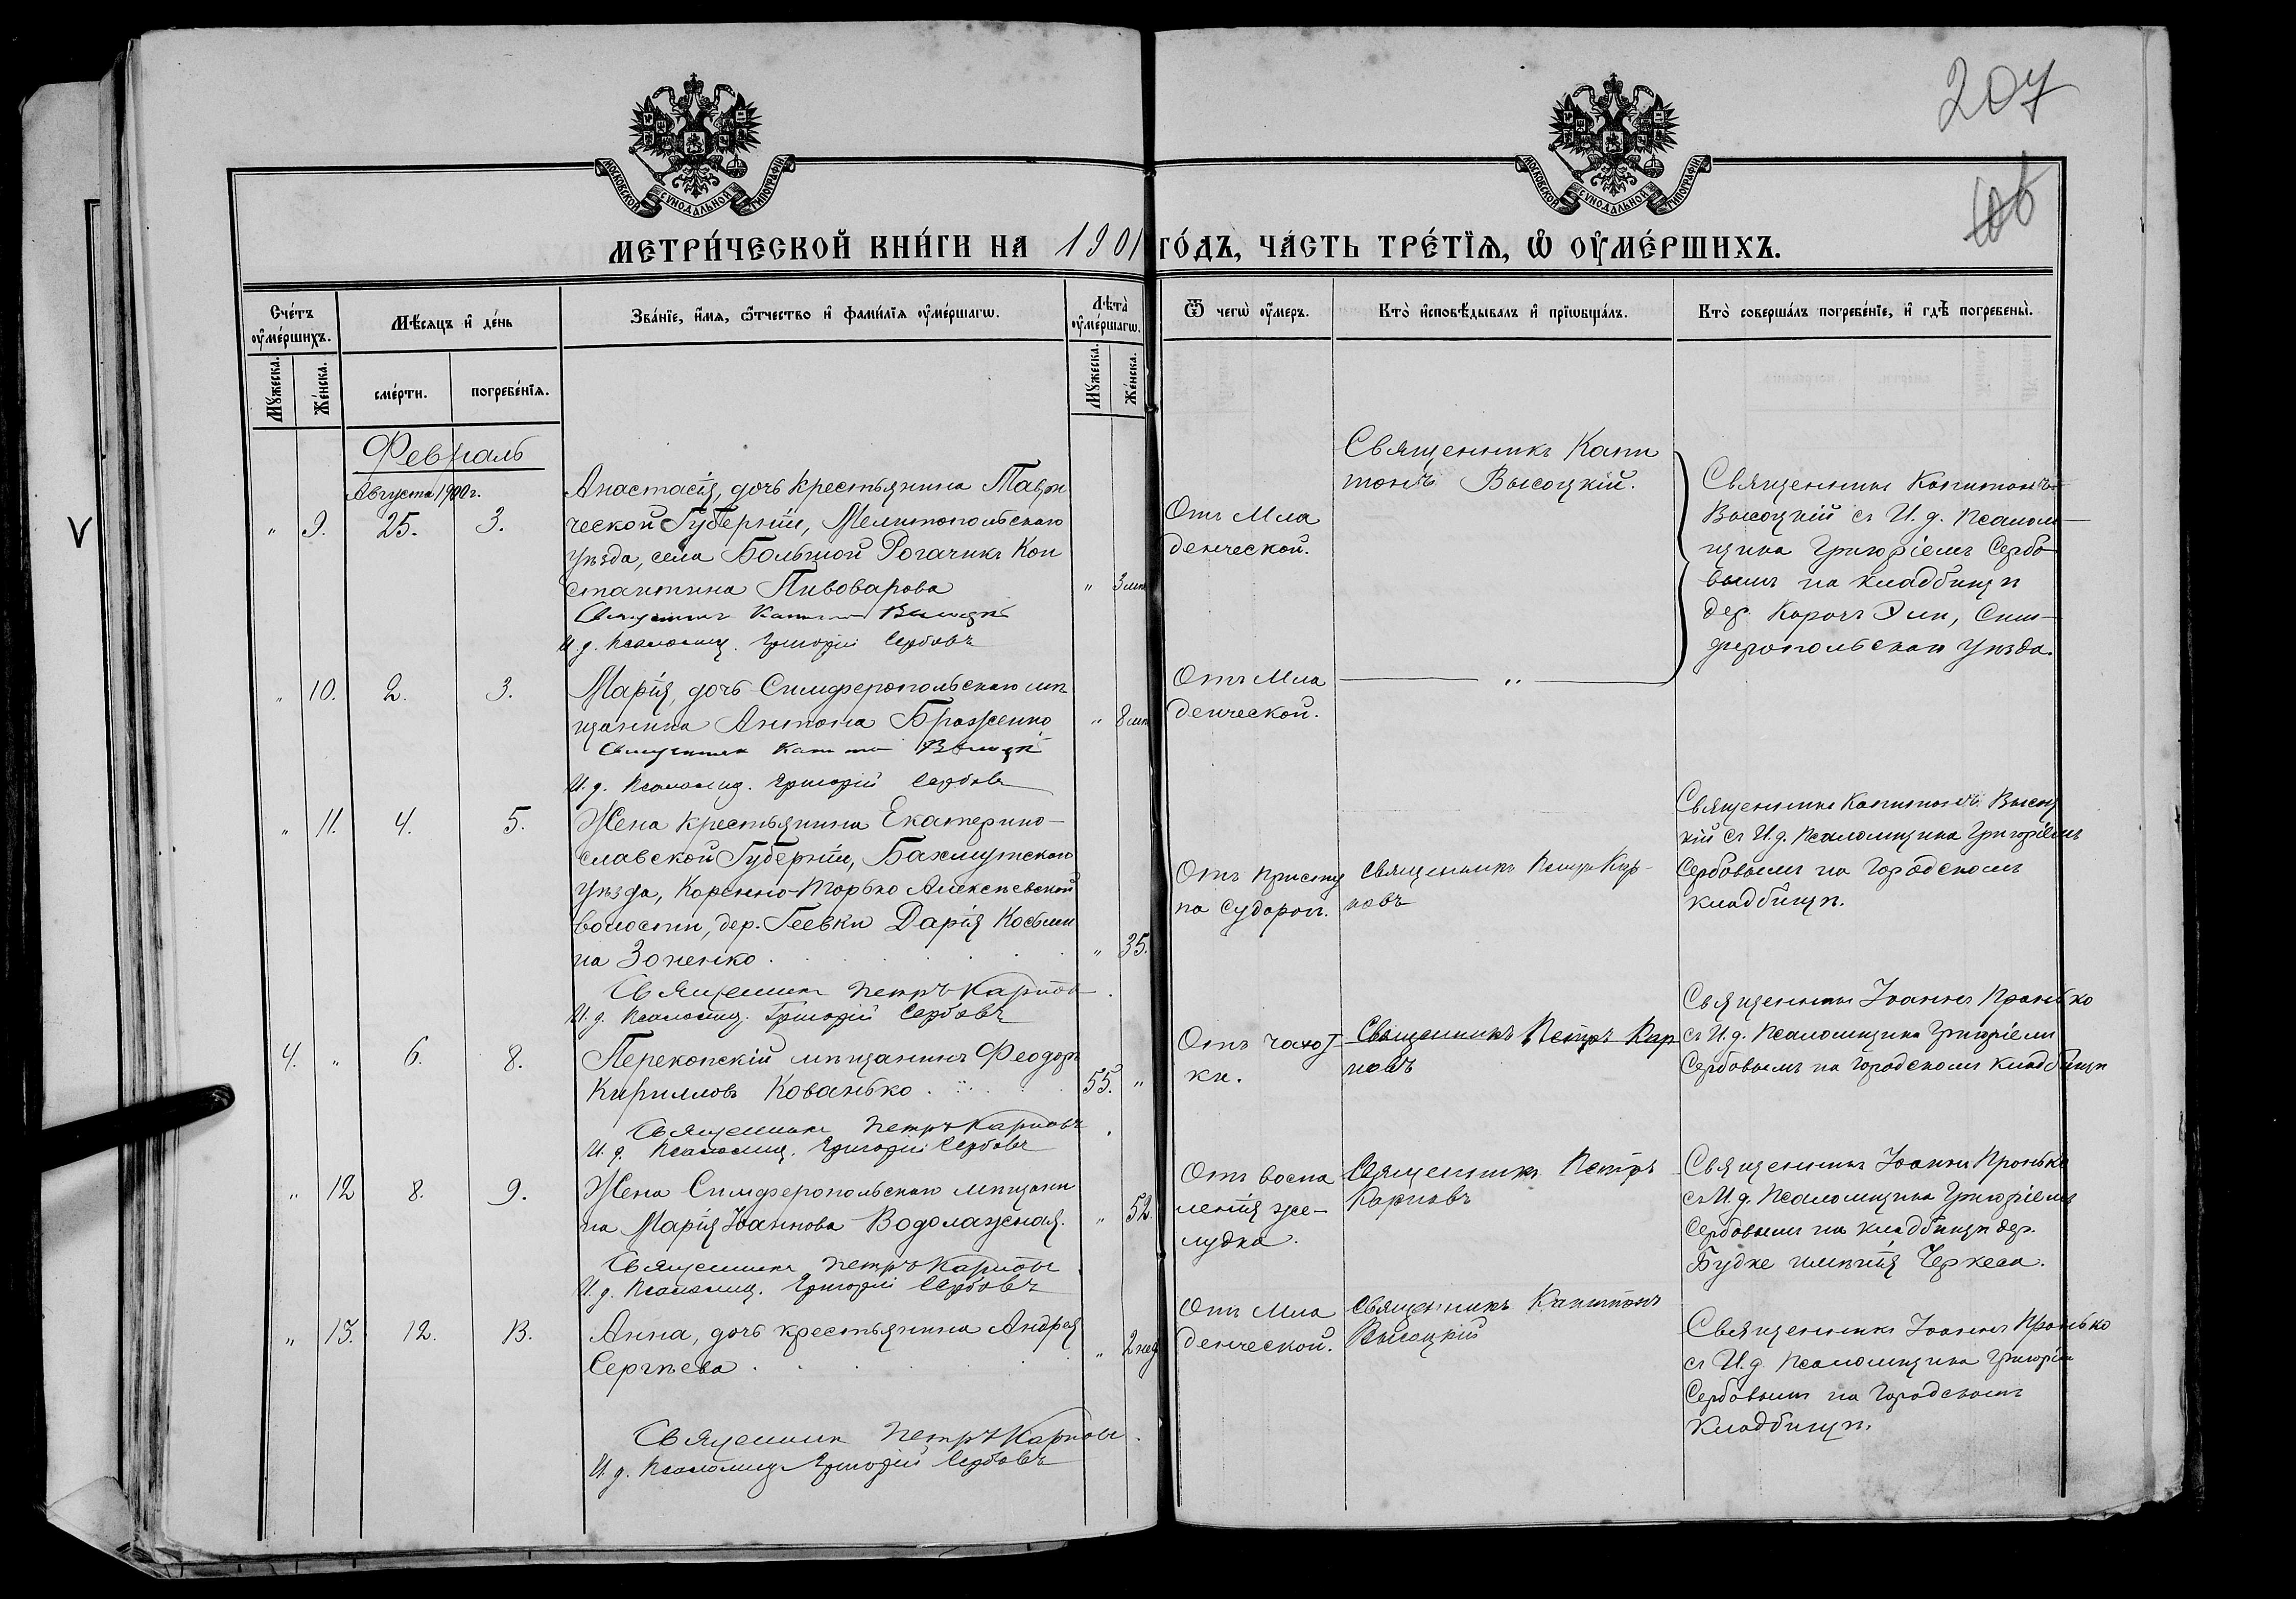 207
106
МОСКОВСКОЙ СѴНОДАЛЬНОЙ ТИПОГРАФІИ
МОСКОВСКОЙ СѴНОДАЛЬНОЙ ТИПОГРАФІИ
МЕТРИ́ЧЕСКОЙ КНИ́ГИ НА 1901 ГО́ДЪ, ЧА́СТЬ ТРЕ́ТЇѦ, Ѡ ОУМЕ́РШИХЪ.
Сче́тъ оумершихъ.
Мѣсяцъ и де́нь
Зва́нїе, и҆мя, ѻтчество и҆ фами́лїя оумершагѡ.
Лѣта̀ оумершагѡ.
Ѿ чегѡ̀ оумеръ.
Кто̀ и҆сповѣдывалъ и҆ прїѡбщалъ.
Кто̀ соверша́лъ погребе́нїе, и҆ гдѣ̀ погребены̀.
Мꙋжеска.
Же́нска.
сме́рти.
погребе́нїя.
Мꙋжеска.
Же́нска.
Февраль
Августа 1900 г.
„ 9. 25. 3.
Анастасія, дочь крестьянина Таври
ческой Губерніи, Мелитопольскаго
уѣзда, села Большой Рогачикъ Кон
стантина Пивоварова
„ 3 мѣс
Священникъ Капитонъ Высоцкій
И. д. Псаломщ. Григорій Сербовъ
Отъ Мла
денческой.
Священникъ Капи
тонъ Высоцкій.
Священникъ Капитонъ
Высоцкій съ И. д. Псалом
щика Григоріемъ Сербо
вымъ на кладбищѣ
дер. Карачъ Эли, Сим
феропольскаго уѣзда.
„ 10. 2. 3.
Марія, дочь Симферопольскаго мѣ
щанина Антона Браженко
„ 8 мѣс
Священникъ Капитонъ Высоцкій
И. д. Псаломщ. Григорій Сербовъ
Отъ Мла
денческой.
„
„ 11. 4. 5.
Жена крестьянина Екатерино-
славской Губерніи, Бахмутскаго
уѣзда, Коренно-Торько Алексѣевской
волости, дер. Геевки Дарія Косьми
на Зоненко
„ 35.
Священникъ Петръ Карповъ
И. д. Псаломщ. Григорій Сербовъ
Отъ присту
па судорог.
Священникъ Петръ Кар-
повъ
Священникъ Капитонъ Высоц
кій съ И. д. Псаломщика Григоріемъ
Сербовымъ на Городскомъ
кладбищѣ.
4. „ 6. 8.
Перекопскій мѣщанинъ Феодоръ
Кирилловъ Кованько
55. „
Священникъ Петръ Карповъ
И. д. Псаломщ. Григорій Сербовъ
Отъ чахот
ки.
Священникъ Петръ Кар
повъ
Священникъ Іоаннъ Пронько
съ И. д. Псаломщика Григоріемъ
Сербовымъ на городскомъ кладбищѣ
„ 12 8. 9.
Жена Симферопольскаго мѣщани
на Марія Іоаннова Водолажская.
„ 52.
Священникъ Петръ Карповъ
И. д. Псаломщ. Григорій Сербовъ
Отъ воспа
ленія же-
лудка.
Священникъ Петръ
Карповъ
Священникъ Іоаннъ Пронько
съ И. д. Псаломщика Григоріемъ
Сербовымъ на кладбищѣ дер.
Будке имѣнія Черкеса.
„ 13. 12. 13.
Анна, дочь крестьянина Андрея
Сергѣева
„ 2 нед
Священникъ Петръ Карповъ
И. д. Псаломщ. Григорій Сербовъ
Отъ Мла
денческой.
Священникъ Капитонъ
Высоцкій
Священникъ Іоаннъ Пронько
съ И. д. Псаломщика Григоріем
Сербовымъ на Городскомъ
Кладбищѣ.